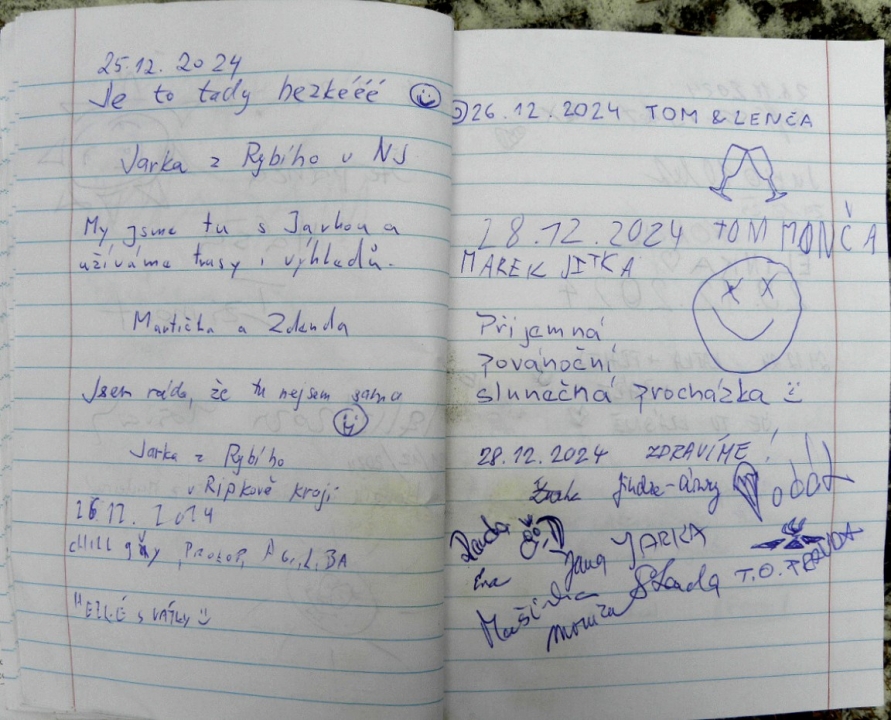 25.12.2024
Je to tady hezkééé
Jarka z Rybího v NJ
My jsme tu s Jarkou a
užíváme trasy i výhledů.
Martička a Zdenda
Jsem ráda, že tu nejsem sama
Jarka z Rybího
v Ripkově kroji
26.12.2014
PROKOP,
HEZKÉ SVÁTKY
26.12.2024 TOM & LENČA
28.12.2024 TOM MONČA
MAREK JITKA
Příjemná
povánoční
slunečná procházka
28.12.2024 ZDRAVÍME!
Jana JARKA
Monča
T.O.